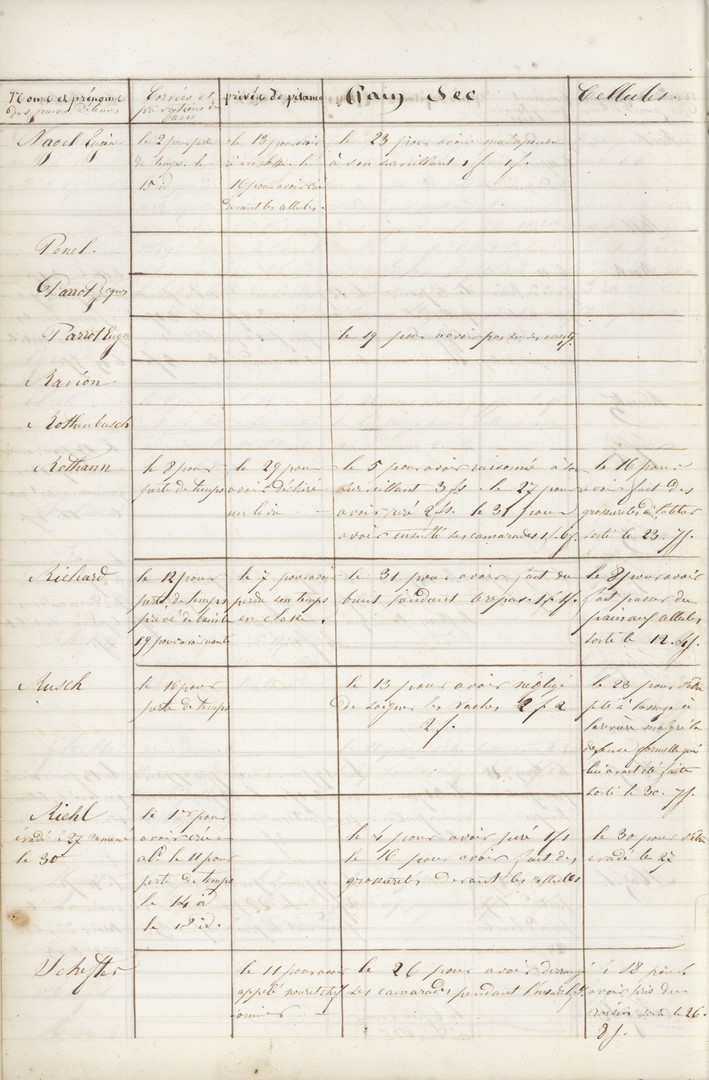 Noms et prénoms des jeunes Détenus
Corvées et privations de
privés de pitance
Pain Sec
Cellules.
Nagel Eugène
le 2 pour perte
de temps. le
15 id
le 13 pour avoir
ri en classe le
16 pour avoir crié
devant les cellules.
le 23 pour avoir mal répondu
à son surveillant 1 f. 1 f.
Penel.
Parrot
Parrot Eugè
le 19 pour avoir pas
Ravion
Rothenbusch
Rothann
le 8 pour
perte de temps
le 29 pour
avoir déchiré
un livre
le 5 pour avoir raisonné à son
surveillant 3 fs. le 27 pour
avoir 2 fs. le 31 pour
avoir insulté ses camarades 1 f.
le 16 pour
avoir fait des
grossièretés à l'atelier
sorti le 23. 7 f.
Richard
le 12 pour
perte de temps
privé de
19 pour avoir
le 7 pour avoir
perdu son temps
en classe.
le 31 pour avoir fait du
bruit pendant le repas. 1 f.
le 8 pour avoir
fait passer du
pain aux cellules
sorti le 12. 4 f.
Rusch
le 16 pour
perte de temps
le 13 pour avoir négligé
de soigner les vaches 2 f
2 f.
le 23 pour s'être
à la
rivière malgré la
défense formelle qui
lui avait été faite
sorti le 30. 7 f.
Riehl
évadé le 27 ramené
le 30
le 1er pour
avoir crié
le 11 pour
perte de temps
le 14 id
le 18 id.
le 4 pour avoir juré 1 f
le 16 pour avoir fait des
grossièretés devant les cellules
le 30 pour s'être
évadé le 27
Scheffter
le 11 pour avoir
appelé
le 26 pour avoir dérangé
ses camarades pendant
le 18 pour
avoir pris du
raisin sorti le 26.
8 f.